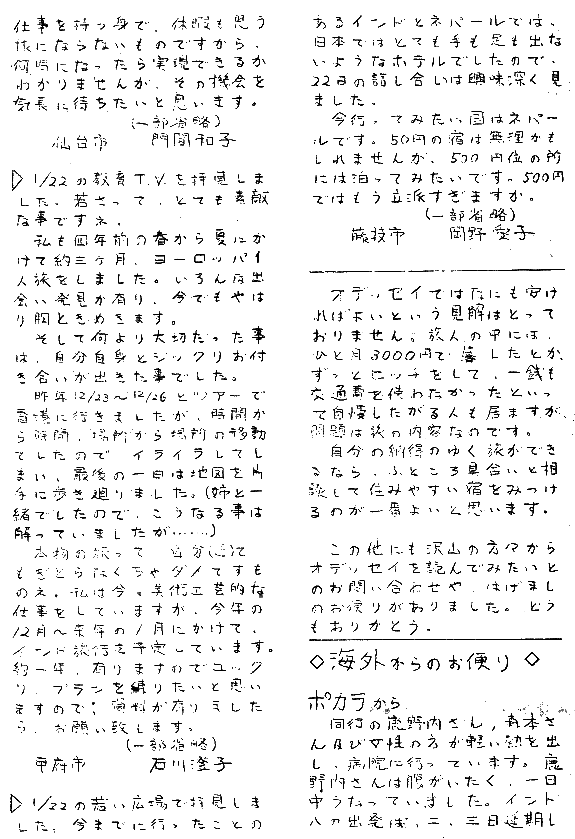 仕事を持つ身で、休暇も思う
様にならないものですから、
何時になったら実現できるか
わかりませんが、その機会を
気長に待ちたいと思います。
(一部省略)
仙台市 門間和子
▷1/22の教育T.V.を拝見しま
した。若さって、とても素敵
な事ですネ。
私も四年前の春から夏にか
けて約三ヶ月、ヨーロッパ一
人旅をしました。いろんな出
会い発見が有り、今でもやは
り胸ときめきます。
そして何より大切だった事
は、自分自身とジックリお付
き合いが出きた事でした。
昨年12/23~12/26とツアーで
香港に行きましたが、時間か
ら時間、場所から場所の移動
でしたので イライラしてし
まい、最後の一日は地図を片
手に歩き廻りました。(姉と一
緒でしたので、こうなる事は
解っていましたが……)
本物の旅って 自分で
もぎとらなくちゃダメですも
のネ。私は今。美術工芸的な
仕事をしていますが、今年の
12月~来年の1月にかけて、
インド旅行を予定しています。
約一年、有りますのでユック
リ、プランを練りたいと思い
ますので、資料が有りました
ら、お願い致します。
(一部省略)
甲府市 石川澄子
▷1/22の若い広場で拝見しま
した。今までに行ったことの
あるインドとネパールでは、
日本ではとても手も足も出な
いようなホテルでしたので、
22日の話し合いは興味深く見
ました。
今行ってみたい国はネパー
ルです。50円の宿は無理かも
しれませんが、500円位の所
には泊ってみたいです。500円
ではもう立派すぎますか。
(一部省略)
藤枝市 岡野愛子
オデッセイではなにも安け
ればよいという見解はとって
おりません。旅人の中には、
ひと月3000円で暮したとか、
ずっとヒッチをして、一銭も
交通費を使わなかったといっ
て自慢したがる人も居ますが、
問題は旅の内容なのです。
自分の納得のゆく旅ができ
るなら、ふところ具合いと相
談して住みやすい宿をみつけ
るのが一番よいと思います。
この他にも沢山の方々から
オデッセイを読んでみたいと
のお問い合わせや、はげまし
のお便りがありました。どう
もありがとう。
◇海外からのお便り◇
ポカラから
同行の鹿野内さん、青本さ
ん及び女性の方が軽い熱を出
し、病院に行っています。鹿
野内さんは腹がいたく、一日
中うなっていました。インド
への出発は、二、三日延期し